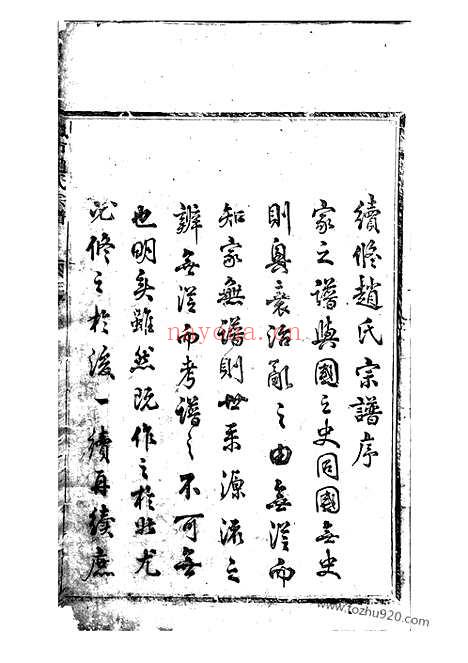 續修趙氏宗譜序
家之譜與國之史同國無史
則興衰治亂之由無從而
知家無譜則世系源流之
辨無從而考譜之不可無
也明矣雖然既作之於此尤
必修之於後一續再續庶
nayona.cn
www.tozhu920.com